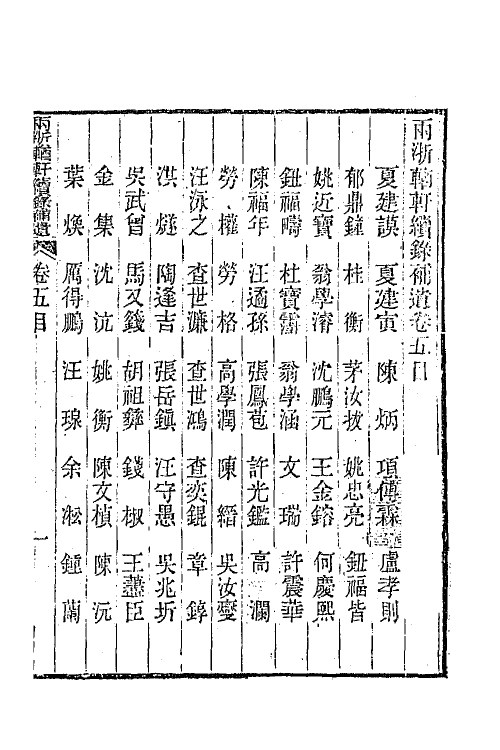 兩浙輶軒續錄補遺卷五目
夏建謨 夏建寅 陳炳 項傅霖 盧孝則
郁鼎鐘 桂衡 茅汝披 姚忠亮 鈕福皆
姚近寶 翁學濬 沈鵬元 王金鎔 何慶熙
鈕福疇 杜寶霱 翁學涵 文瑞 許震華
陳福年 汪遹孫 張鳳苞 許光鑑 高瀾
勞權 勞格 高學潤 陳縉 吳汝雯
汪泳之 查世濂 查世鴻 查奕錕 章錞
洪燧 陶逢吉 張岳鎮 汪守愚 吳兆圻
吳武曾 馬又錢 胡祖彝 錢椒 王藎臣
金集 沈沆 姚衡 陳文楨 陳沅
葉煥 厲得鵬 汪瑔 余淞 鍾蘭
兩浙輶軒續錄補遺 卷五目 一